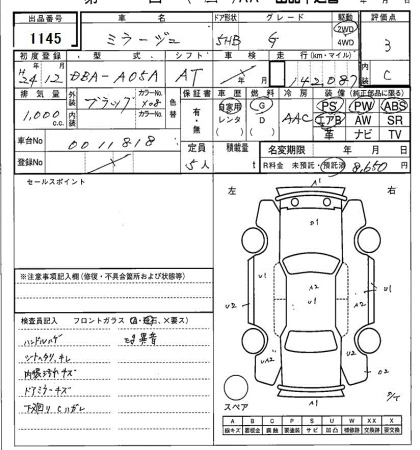 出品番号 車名 ドア形状 グレード 駆動 評価点
1145 ミラージュ 5HB G 2WD 4WD 3
初度登録 型式 シフト 車検 走行(km・マイル) 内装
H24 12 DBA-A05A AT 年 月 142,087 C
排気量 外装 カラーNo. 色替 保証書 車歴 燃料 冷房 装備(純正部品に限る)
1,000 c.c. ブラック X08 有・無 自家用 レンタ G D AAC PS PW ABS
内装 カラーNo. エアB AW SR
革 ナビ TV
車台No 0011818 定員 積載量 名変期限 年 月 日
登録No 5人 t R料金 未預託・預託済 8,650
セールスポイント
左 右
※注意事項記入欄(修復・不具合箇所および状態等)
検査員記入 フロントガラス(A・飛石、×要ス)
ハンドルハゲ
シートスリ、キレ
内張汚キズ
ドアミラーキズ
下廻りCハガレ
A1
D1
U1
A1
U1
U2
U2
UA2
A1
スペア
A B C P S U W X XX
線キズ 要板金 腐食 要塗装 サビ 凹凸 補修跡 交換跡 要交換